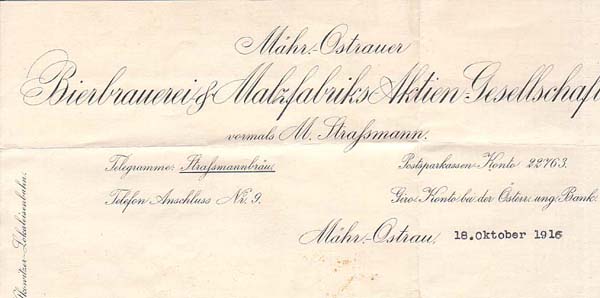 Mähr.-Ostrauer
Bierbrauerei & Malzfabriks-Aktien-Gesellschaft
vormals M. Straßmann.
Telegramme: Straßmannbräu.
Postsparkassen-Konto 22763.
Telefon Anschluss Nr. 9.
Giro-Konto bei der Österr. ung. Bank.
Mähr.-Ostrau, 18.Oktober 1916
-Lokaleisenbahn.